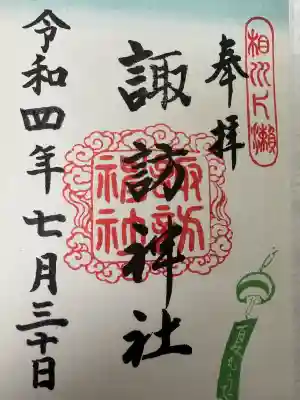 相州片瀬
奉拝
諏訪神社
諏訪
神社
令和四年七月三十日
夏もうで